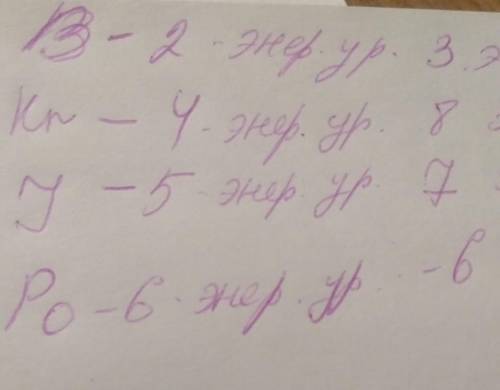 B - 2 энер. ур. 3 э
Kr - 4 энер. ур. 8
J - 5 энер. ур. 7
Po - 6 энер. ур. - 6